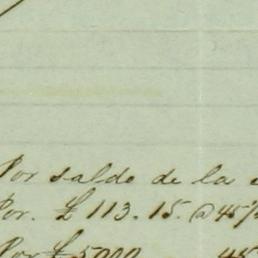 Por saldo de la
Por. £ 113. 15. @ 45
Por £ 5000 45